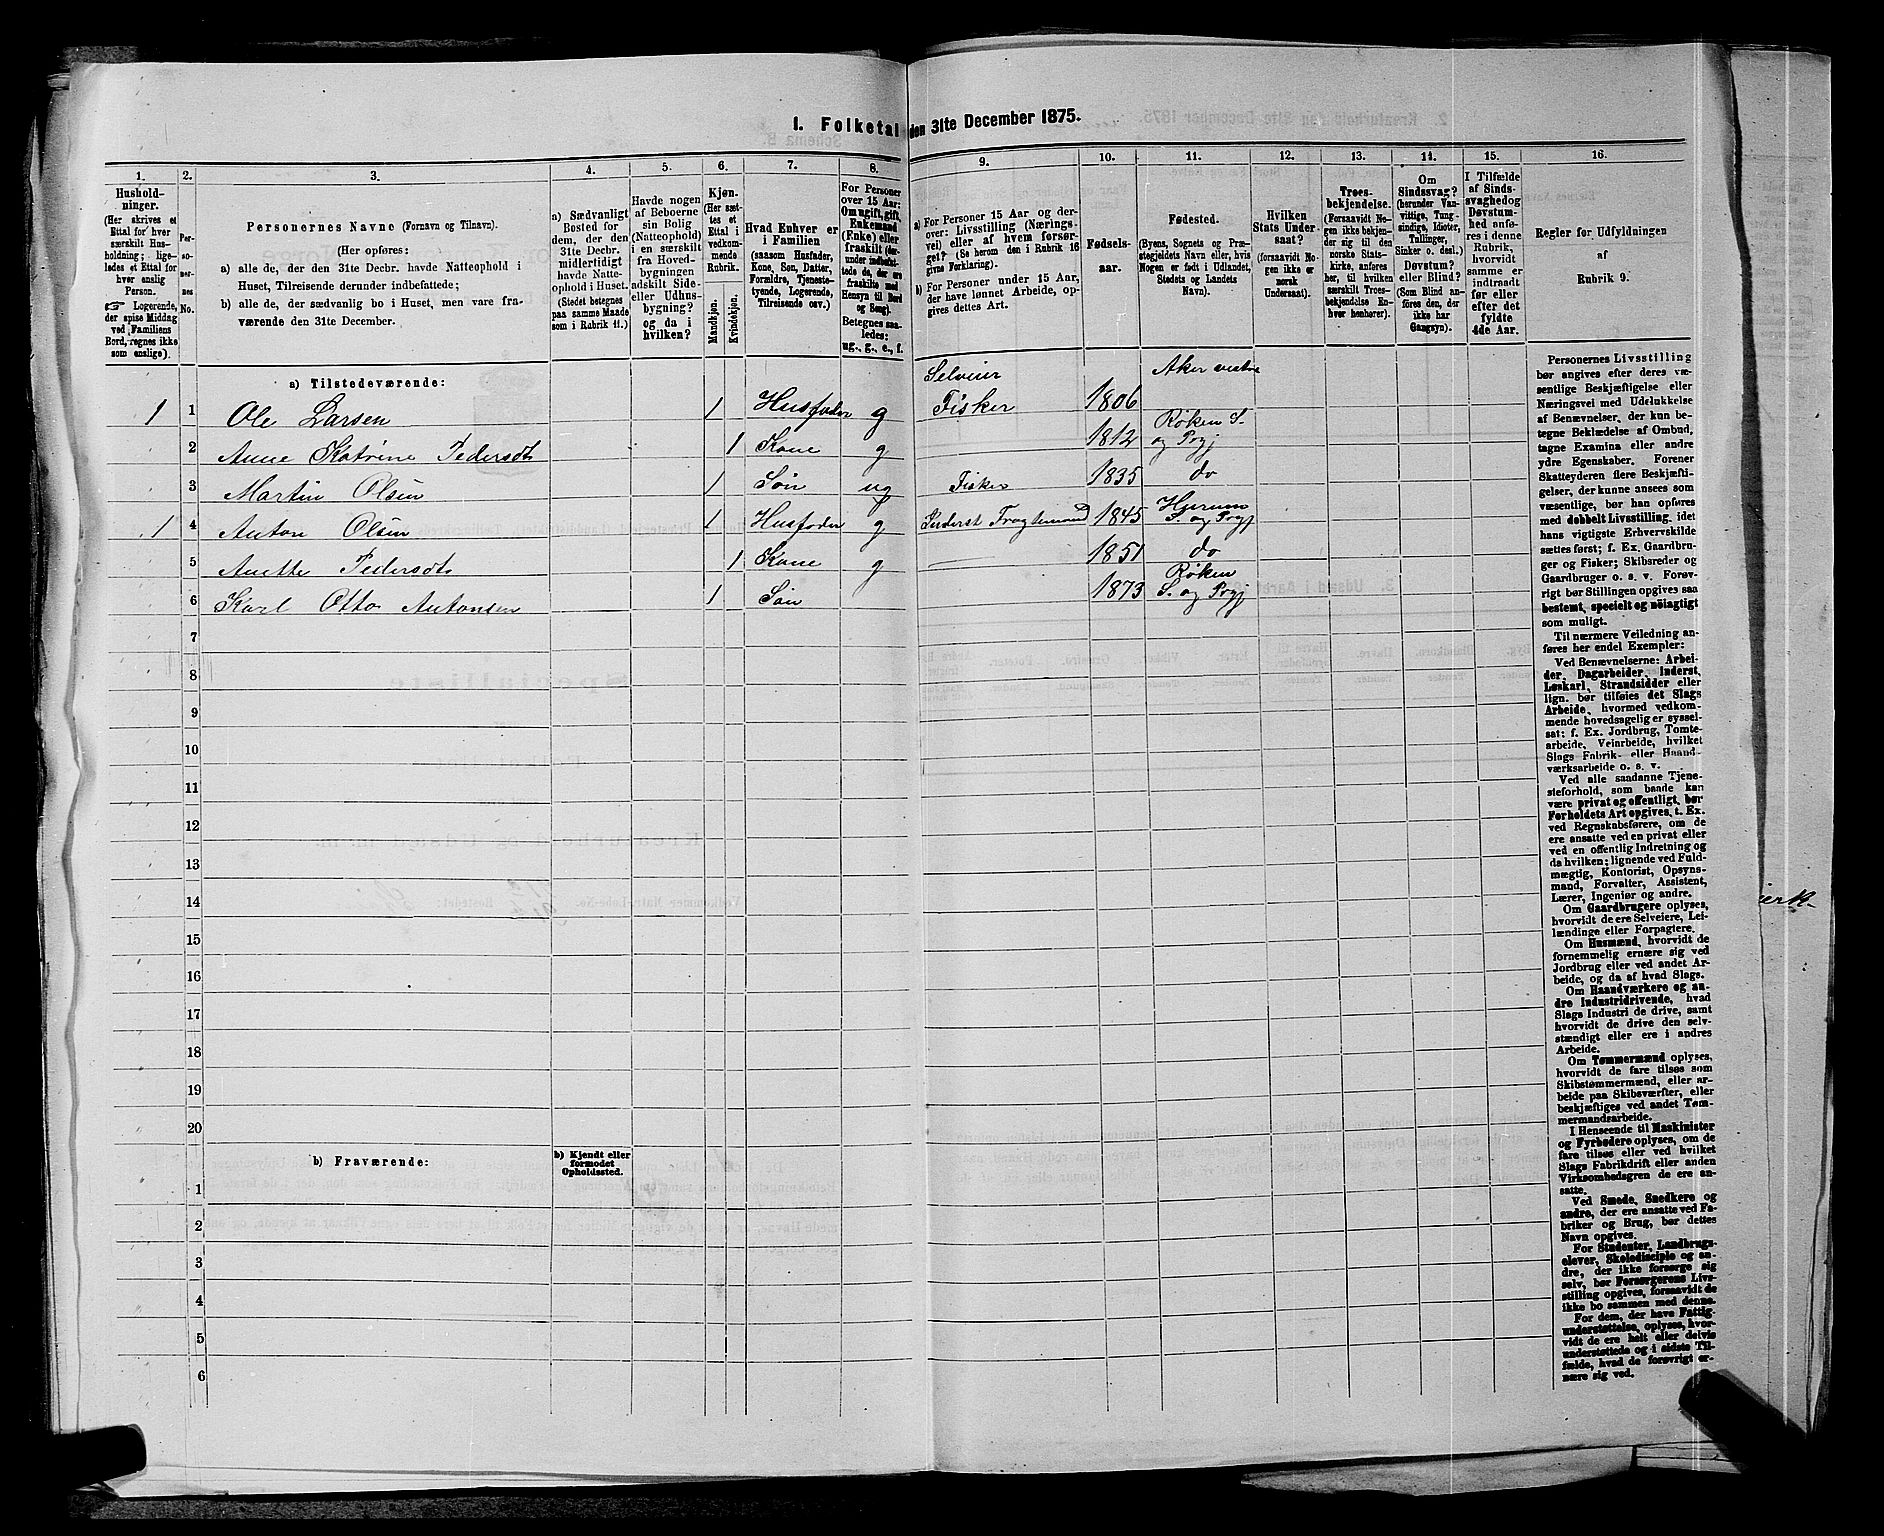 1. Folketal den 31te December 1875.
1. 2. 3. 4. 5. 6. 7. 8. 9. 10. 11. 12. 13. 14. 15. 16.
Hushold-
ninger.
(Her skrives et
Ettal for hver
særskilt Hus-
holdning; lige-
ledes et Ettal for
hver enslig
Person.
☞ Logerende,
der spise Middag
ved Familiens
Bord, regnes ikke
som enslige).
Per-
so-
ner-
nes
No.
Personernes Navne (Fornavn og Tilnavn).
(Her opføres:
a) alle de, der den 31te Decbr. havde Natteophold i
Huset, Tilreisende derunder indbefattede;
b) alle de, der sædvanlig bo i Huset, men vare fra-
værende den 31te December.
a) Sædvanligt
Bosted for
dem, der den
31te Decbr.
midlertidigt
havde Natte-
ophold i Huset.
(Stedet betegnes
paa samme Maade
som i Rubrik 11.)
Havde nogen
af Beboerne
sin Bolig
(Natteophold)
i en særskilt
fra Hoved-
bygningen
adskilt Side-
eller Udhus-
bygning?
og da i
hvilken?
Kjøn.
(Her sæt-
tes et
Ettal i
vedkom-
mende
Rubrik.
Mandkjøn.
Kvindekjøn.
Hvad Enhver er
i Familien
(saasom Husfader,
Kone, Søn, Datter,
Forældre, Tjeneste-
tyende, Logerende,
Tilreisende osv.)
For Personer
over 15 Aar:
Om ugift, gift,
Enkemand
(Enke) eller
fraskilt (der-
under indbefat-
tede de, der ere
fraskilte med
Hensyn til Bord
og Seng).
Betegnes saa-
ledes:
ug., g., e., f.
a) For Personer 15 Aar og der-
over: Livsstilling (Nærings-
vei) eller af hvem forsør-
get? (Se herom den i Rubrik 16
givne Forklaring).
b) For Personer under 15 Aar,
der have lønnet Arbeide, op-
gives dettes Art.
Fødsels-
aar.
Fødested.
(Byens, Sognets og Præ-
stegjeldets Navn eller, hvis
Nogen er født i Udlandet,
Stedets og Landets
Navn).
Hvilken
Stats Under-
saat?
(forsaavidt No-
gen ikke er
norsk
Undersaat).
Troes-
bekjendelse.
(Forsaavidt No-
gen ikke bekjen-
der sig til den
norske Stats-
kirke, anføres
her, til hvilken
særskilt Troes-
bekjendelse En-
hver henhører).
Om
Sindssvag?
(herunder Van-
vittige, Tung-
sindige, Idioter,
Tullinger,
Sinker o. desl.)
Døvstum?
eller Blind?
(Som Blind an-
føres den, der
ikke har
Gangsyn).
I Tilfælde
af Sinds-
svaghed og
Døvstum-
hed anfø-
res i denne
Rubrik,
hvorvidt
samme er
indtraadt
før eller
efter det
fyldte
4de Aar.
Regler for Udfyldningen
af
Rubrik 9.
a) Tilstedeværende:
Selveier Aker vestre
1 1 Ole Larsen 1 Husfader g Fisker 1806
Røken S.
2 Anne Katrine Pedersdt 1 Kone g 1812 og Prgj
3 Martin Olsen 1 Søn ug Fisker 1835 do
1 4 Anton Olsen 1 Husfader g Inderst Fragtemand 1845 Hurum S. og Prgj
5 Anette Pedersdt 1 Kone g 1851 do
Røken
6 Karl Otto Antonsen 1 Søn 1873 S. og Prgj
7
8
9
10
11
12
13
14
15
16
17
18
19
20
b) Fraværende:
b) Kjendt eller
formodet
Opholdssted.
1
2
3
4
5
6
Personernes Livsstilling
bør angives efter deres væ-
sentlige Beskjæftigelse eller
Næringsvei med Udelukkelse
af Benævnelser, der kun be-
tegne Beklædelse af Ombud,
tagne Examina eller andre
ydre Egenskaber. Forener
Skatteyderen flere Beskjæfti-
gelser, der kunne ansees som
væsentlige, bør han opføres
med dobbelt Livsstilling, idet
hans vigtigste Erhvervskilde
sættes først; f. Ex. Gaardbru-
ger og Fisker; Skibsreder og
Gaardbruger o. s. v. Forøv-
rigt bør Stillingen opgives saa
bestemt, specielt og nöiagtigt
som muligt.
Til nærmere Veiledning an-
føres her endel Exempler:
Ved Benævnelserne: Arbei-
der, Dagarbeider, Inderst,
Løskarl, Strandsidder eller
lign. bør tilføies det Slags
Arbeide, hvormed vedkom-
mende hovedsagelig er syssel-
sat; f. Ex. Jordbrug, Tomte-
arbeide, Veiarbeide, hvilket
Slags Fabrik- eller Haand-
værksarbeide o. s. v.
Ved alle saadanne Tjene-
steforhold, som baade kan
være privat og offentligt, bør
Forholdets Art opgives, t. Ex.
ved Regnskabsførere, om de
ere ansatte ved en privat eller
ved en offentlig Indretning og
da hvilken; lignende ved Fuld-
mægtig, Kontorist, Opsyns-
mand, Forvalter, Assistent,
Lærer, Ingeniør og andre.
Om Gaardbrugere oplyses,
hvorvidt de ere Selveiere, Lei-
lændinge eller Forpagtere.
Om Husmænd, hvorvidt de
fornemmelig ernære sig ved
Jordbrug eller ved andet Ar-
beide, og da af hvad Slags.
Om Haandværkere og an-
dre Industridrivende, hvad
Slags Industri de drive, samt
hvorvidt de drive den selv-
stændigt eller ere i andres
Arbeide.
Om Tømmermænd oplyses,
hvorvidt de fare tilsøs som
Skibstømmermænd, eller ar-
beide paa Skibsværfter, eller
beskjæftiges ved andet Tøm-
mermandsarbeide.
I Henseende til Maskinister
og Fyrbødere oplyses, om de
fare tilsøs eller ved hvilket
Slags Fabrikdrift eller anden
Virksomhedsgren de ere an-
satte.
Ved Smede, Snedkere og
andre, der ere ansatte ved Fa-
briker og Brug, bør dettes
Navn opgives.
For Studenter, Landbrugs-
elever, Skoledisciple og an-
dre, der ikke forsørge sig
selv, bør Forsørgerens Livs-
stilling opgives, forsaavidt de
ikke bo sammen med denne.
For dem, der have Fattig-
understøttelse, oplyses, hvor-
vidt de ere helt eller delvis
understøttede og i sidste Til-
fælde, hvad de forøvrigt er-
nære sig ved.